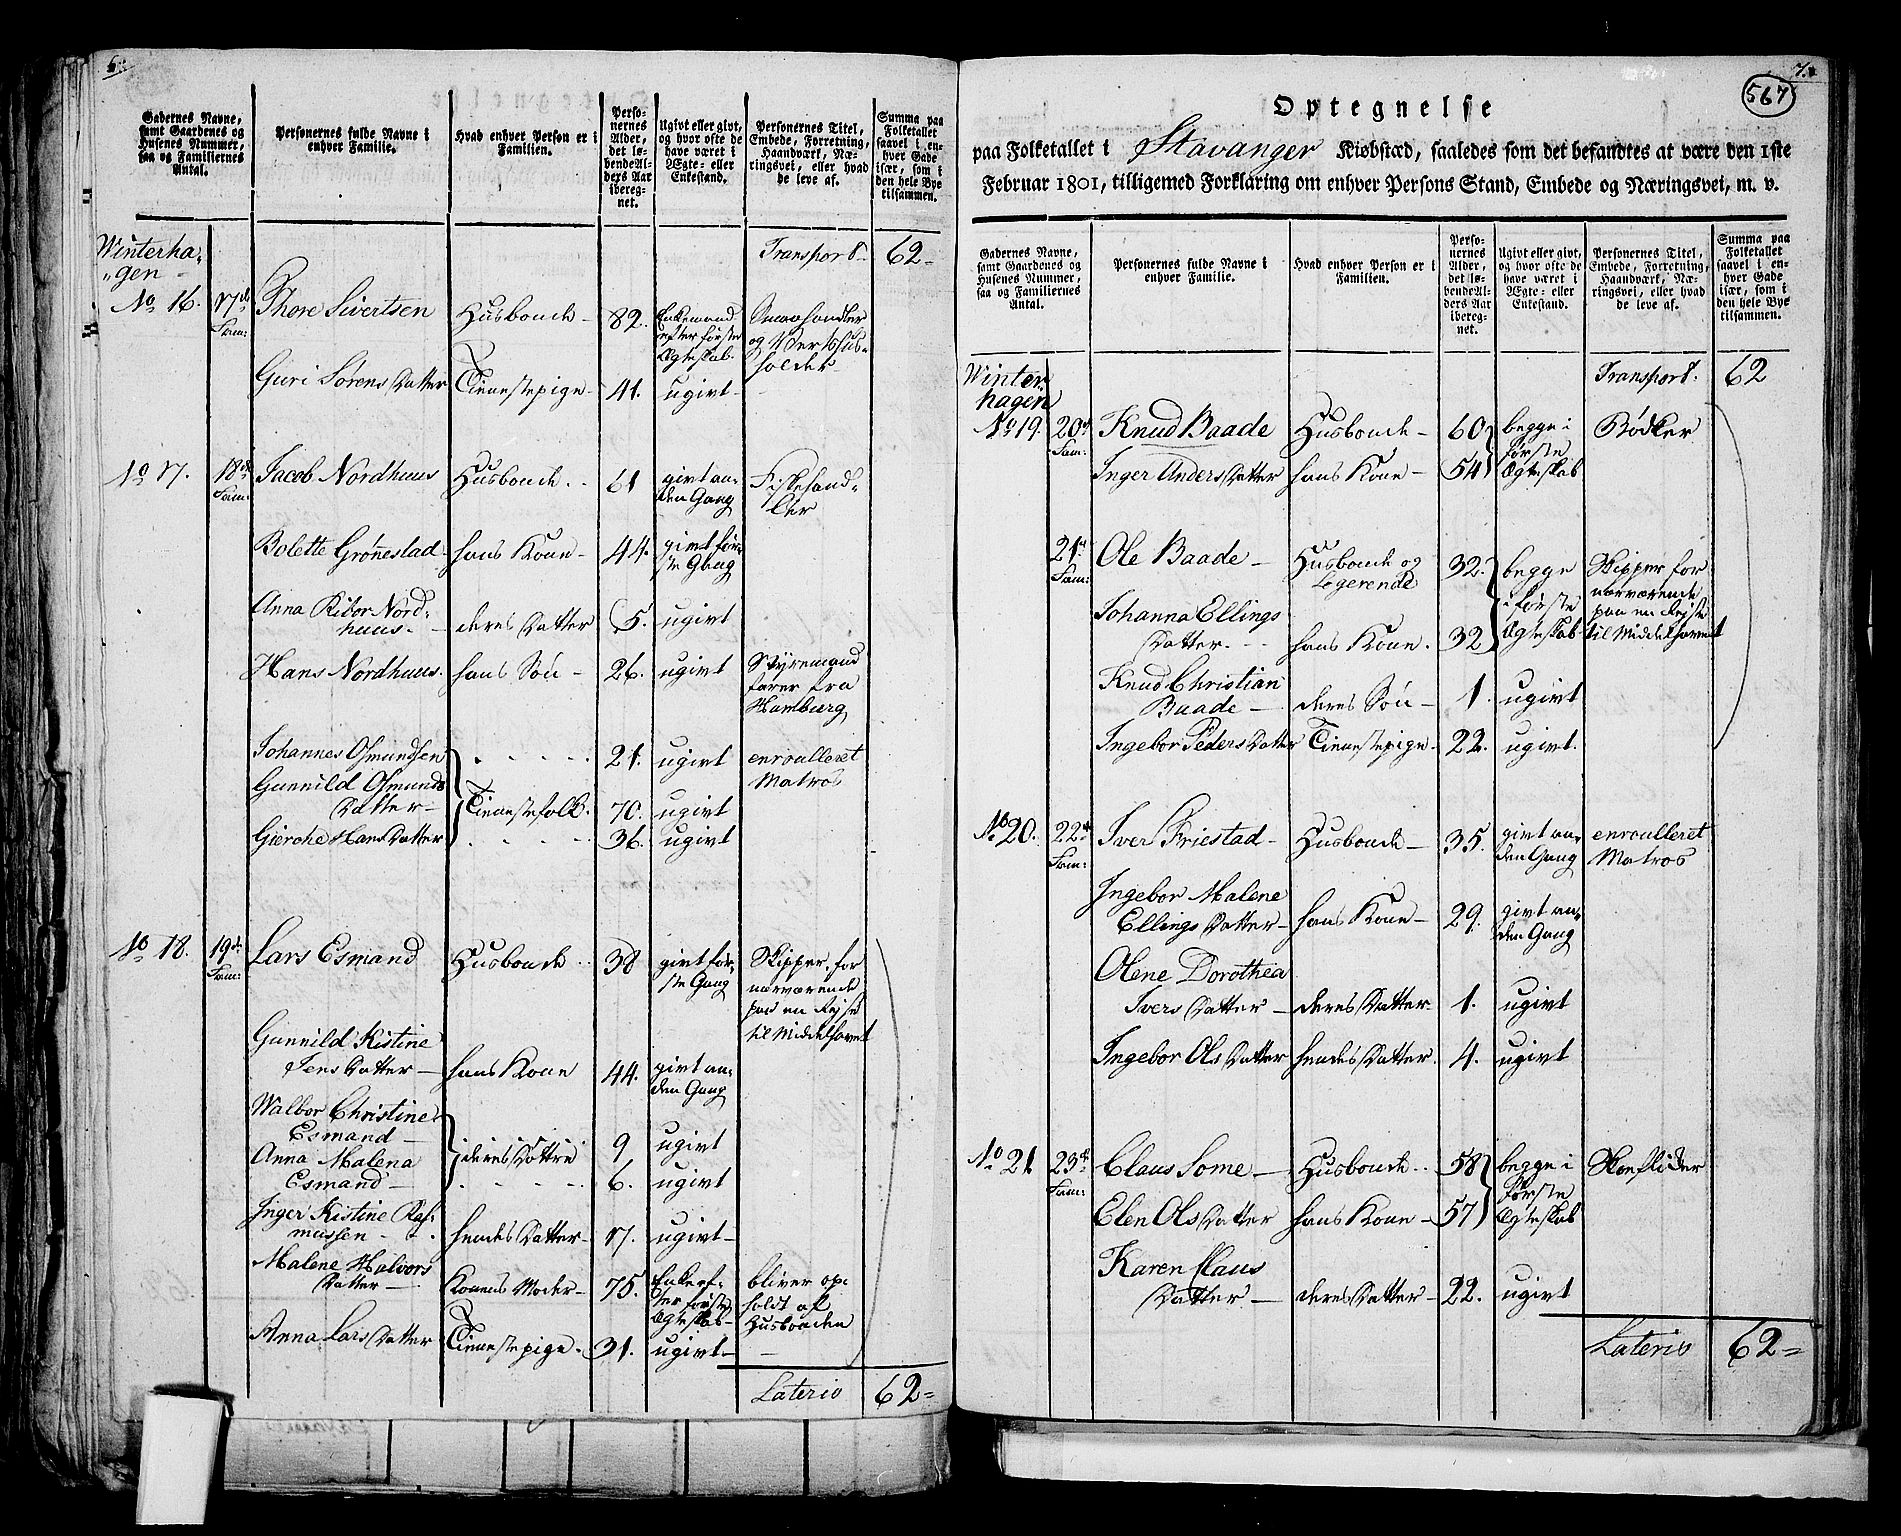 6.
Gadernes Navne,
samt Gaardenes og
Husenes Nummer,
saa og Familiernes
Antal.
Personernes fulde Navne i
enhver Familie.
Hvad enhver Person er i
Familien.
Perso-
nernes
Alder,
det lø-
bende Al-
ders Aar
ibereg-
net.
Ugivt eller givt,
og hvor ofte de
have været i
Ægte- eller
Enkestand.
Personernes Titel,
Embede, Forretning,
Haandværk, Næ-
ringsvei, eller hvad
de leve af.
Summa paa
Folketallet
saavel i en-
hver Gade
især, som i
den hele Bye
tilsammen.
Winterha-
"gen -
Transport - 62 -
No 16. 17de Fam: Thore Sivertsen Husbonde - 82. Enkemand efter første Ægteskab. Smaahandler og Vertshus-holder
Guri Sørens Datter Tienestepige - 41. ugivt -
No 17. 18de Fam: Jacob Nordhuus Husbonde - 61 givt an-den Gang Fiskehand-ler
Bolette Grønnestad hans Kone - 44. givt før-ste Gang
Anna Ribor Nord-
huus. - deres Datter 5. ugivt
Hans Nordhuus. hans Søn - 26. ugivt Styremand farer fra Hamburg
Johannes Osmundsen 21. ugivt enroulleret Matros
Gunnild Osmunds
Datter - Tienestefolk. 70. ugivt
Gierche Hans Datter 36. ugivt
No 18. 19de Fam: Lars Esmand Husbonde - 38 givt før-ste Gang Skipper, for nærværende paa en Rejse til Middelhavet
Gunnild Kistine
Jens Datter - hans Kone 44. givt an-den Gang
Walbor Christine
Esmand - deres Døttre 9 ugivt
Anna Malena
Esmand - 6. ugivt
Inger Kistine Ras-
mussen - hendes Datter - 17. ugivt -
Malene Halvors
Datter - Konens Moder - 75. Enke ef-ter første Ægteskab - bliver op-holdt af Husbonden
Anna Lars Datter Tienestepige. 31. ugivt -
Lateris 62 =
7.
567
Optegnelse
paa Folketallet i Stavanger Kiøbstæd, saaledes som det befandtes at være den 1ste
Februar 1801, tilligemed Forklaring om enhver Persons Stand, Embede og Næringsvei, m. v.
Gadernes Navne,
samt Gaardenes og
Husenes Nummer,
saa og Familiernes
Antal.
Personernes fulde Navne i
enhver Familie.
Hvad enhver Person er i
Familien.
Perso-
nernes
Alder,
det lø-
bende Al-
ders Aar
ibereg-
net.
Ugivt eller givt,
og hvor ofte de
have været i
Ægte- eller
Enkestand.
Personernes Titel,
Embede, Forretning,
Haandværk, Næ-
ringsvei, eller hvad
de leve af.
Summa paa
Folketallet
saavel i en-
hver Gade
især, som i
den hele Bye
tilsammen.
Winter
hagen
Transport. 62
No 19. 20de Fam: Knud Baade Husbonde - 60 begge i første Ægteskab Bødker
Inger Anders Datter hans Kone - 54
21de Fam: Ole Baade - Husbonde og Logerende 32. begge i første Ægteskab Skipper for nærværende paa en Rejse til Middelhavet
Johanna Ellings
Datter. - hans Kone. 32
Knud Christian
Baade - deres Søn - 1. ugivt
Ingebor Peders Datter Tienestepige - 22. ugivt.
No 20. 22de Fam: Iver Friestad - Husbonde - 35. givt an-den Gang enroulleret Matros
Ingebor Malene
Ellings Datter - hans Kone - 29. givt an-den Gang
Olene Dorothea
Ivers Datter - deres Datter 1. ugivt
Ingebor Ols Datter hendes Datter. 4. ugivt
No 21 23de Fam: Claus Some - Husbonde - 58 begge i første Ægteskab Skoeflicker
Elen Ols Datter hans Kone - 57
Karen Claus
Datter - deres Datter - 22. ugivt
Lateris 62 =